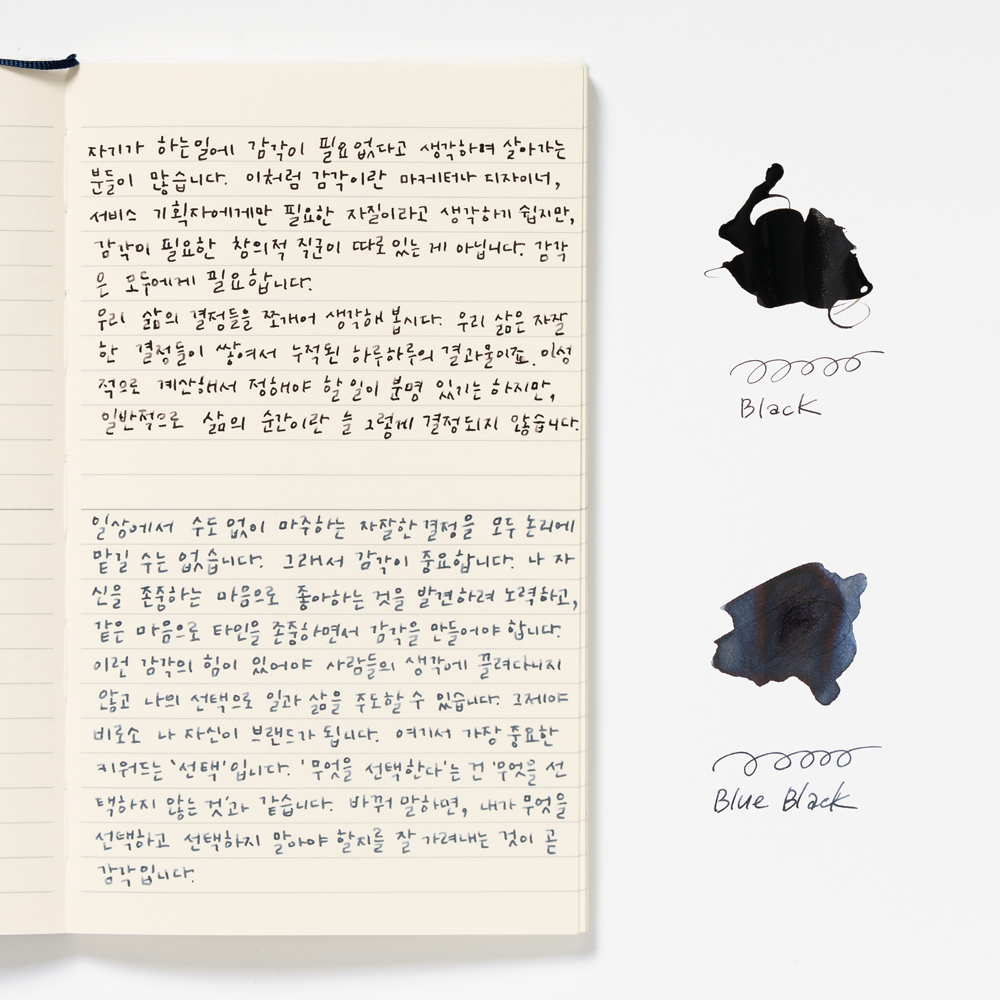 자기가 하는일에 감각이 필요없다고 생각하며 살아가는
분들이 많습니다. 이처럼 감각이란 마케터나 디자이너,
서비스 기획자에게만 필요한 자질이라고 생각하기 쉽지만,
감각이 필요한 창의적 직군이 따로 있는 게 아닙니다. 감각
은 모두에게 필요합니다.
우리 삶의 결정들을 쪼개어 생각해 봅시다. 우리 삶은 자잘
한 결정들이 쌓여서 누적된 하루하루의 결과물이죠. 이성
적으로 계산해서 정해야 할 일이 분명 있기는 하지만,
일반적으로 삶의 순간이란 늘 그렇게 결정되지 않습니다.
일상에서 수도 없이 마주하는 자잘한 결정을 모두 논리에
맡길 수는 없습니다. 그래서 감각이 중요합니다. 나 자
신을 존중하는 마음으로 좋아하는 것을 발견하려 노력하고,
같은 마음으로 타인을 존중하면서 감각을 만들어야 합니다.
이런 감각의 힘이 있어야 사람들의 생각에 끌려다니지
않고 나의 선택으로 일과 삶을 주도할 수 있습니다. 그제야
비로소 나 자신이 브랜드가 됩니다. 여기서 가장 중요한
키워드는 '선택'입니다. '무엇을 선택한다'는 건 '무엇을 선
택하지 않는 것'과 같습니다. 바꿔 말하면, 내가 무엇을
선택하고 선택하지 말아야 할지를 잘 가려내는 것이 곧
감각입니다.
Black
Blue Black